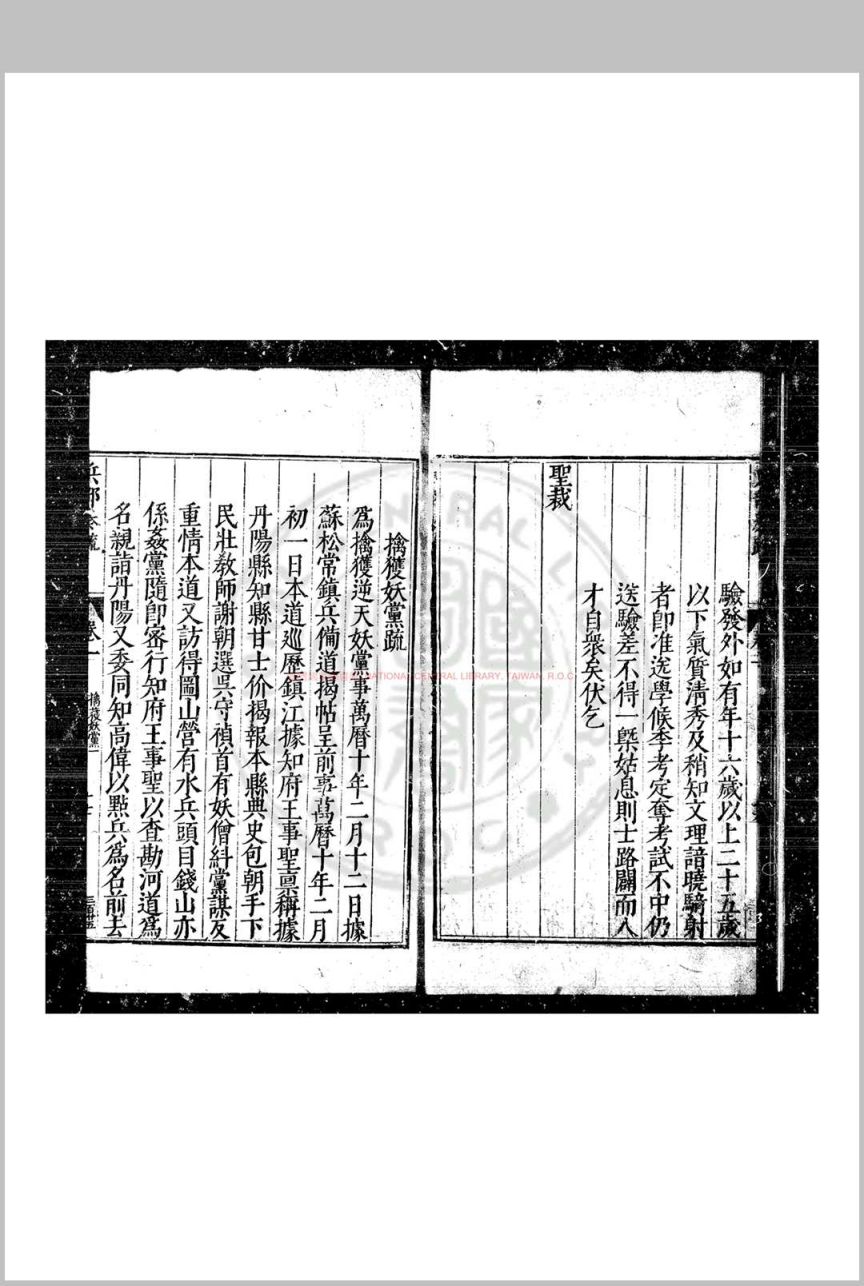 驗發外如有年十六歲以上二十五歲
以下氣質清秀及稍知文理諳曉騎射
者卽准送學候季考定奪考試不中仍
送驗差不得一槩姑息則士路闢而人
才自衆矣伏乞
聖裁
擒獲妖黨疏
爲擒獲逆天妖黨事萬曆十年二月十二日據
蘇松常鎮兵備道揭帖呈前事萬曆十年二月
初一日本道巡歷鎮江據知府王事聖禀稱據
丹陽縣知縣甘士价揭報本縣典史包朝手下
民壯敎師謝朝選吳守禎首有妖僧糾黨謀反
重情本道又訪得圌山營有水兵頭目錢山亦
係姦黨隨卽密行知府王事聖以查勘河道爲
名親詣丹陽又委同知高偉以㸃兵爲名前去
兵部奏疏
卷一
擒獲妖黨一
NATIONAL CENTRAL LIBRARY, TAIWAN, R.O.C